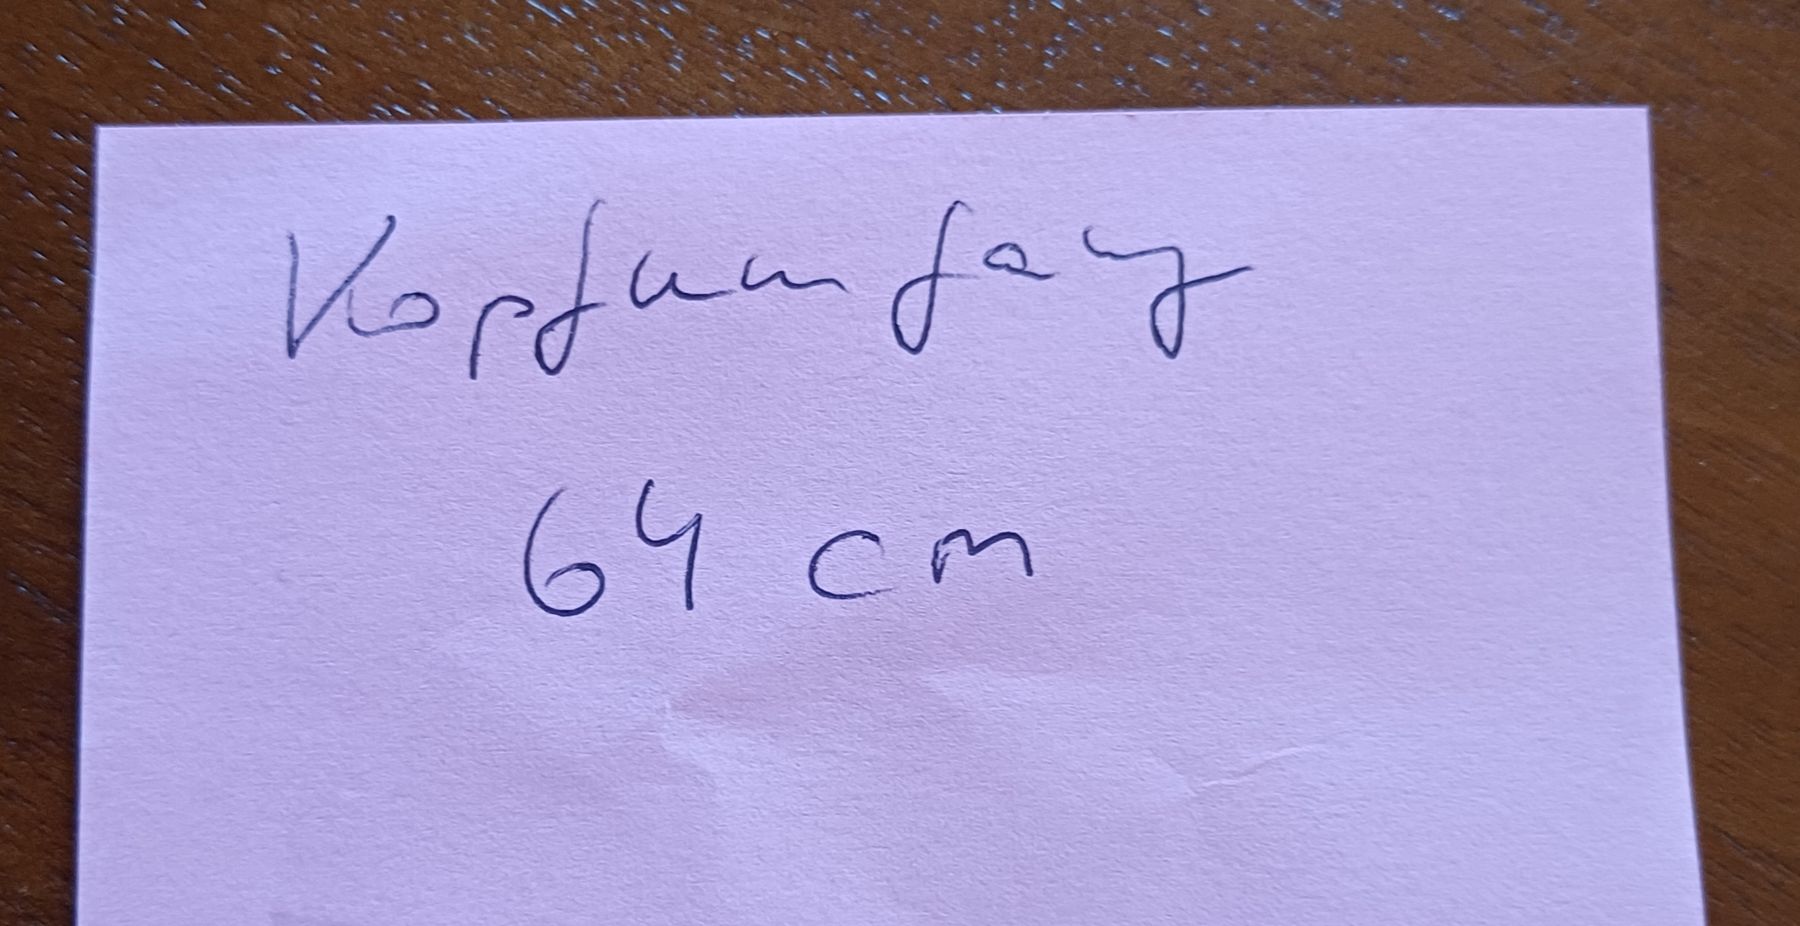 Kopfumfang
64 cm